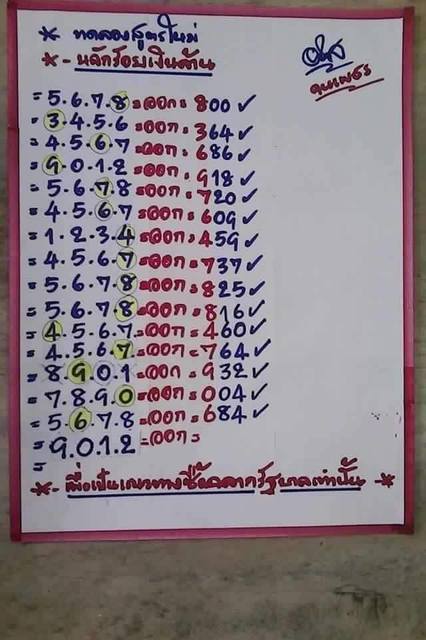 * ทดลองสูตรใหม่
*- หลักร้อยเงินล้าน
= 5.6.7.8 = ออก = 800 ✓
= 3.4.5.6 = ออก = 364 ✓
= 4.5.6.7 = ออก = 686 ✓
= 9.0.1.2 = ออก = 918 ✓
= 5.6.7.8 = ออก = 720 ✓
= 4.5.6.7 = ออก = 609 ✓
= 1.2.3.4 = ออก = 459 ✓
= 4.5.6.7 = ออก = 737 ✓
= 5.6.7.8 = ออก = 825 ✓
= 5.6.7.8 = ออก = 816 ✓
= 4.5.6.7 = ออก = 460 ✓
= 4.5.6.7 = ออก = 764 ✓
= 8.9.0.1 = ออก = 932 ✓
= 7.8.9.0 = ออก = 004 ✓
= 5.6.7.8 = ออก = 684 ✓
= 9.0.1.2 = ออก =
=
*- เพื่อเป็นแนวทางซื้อสลากรัฐบาลเท่านั้น -*